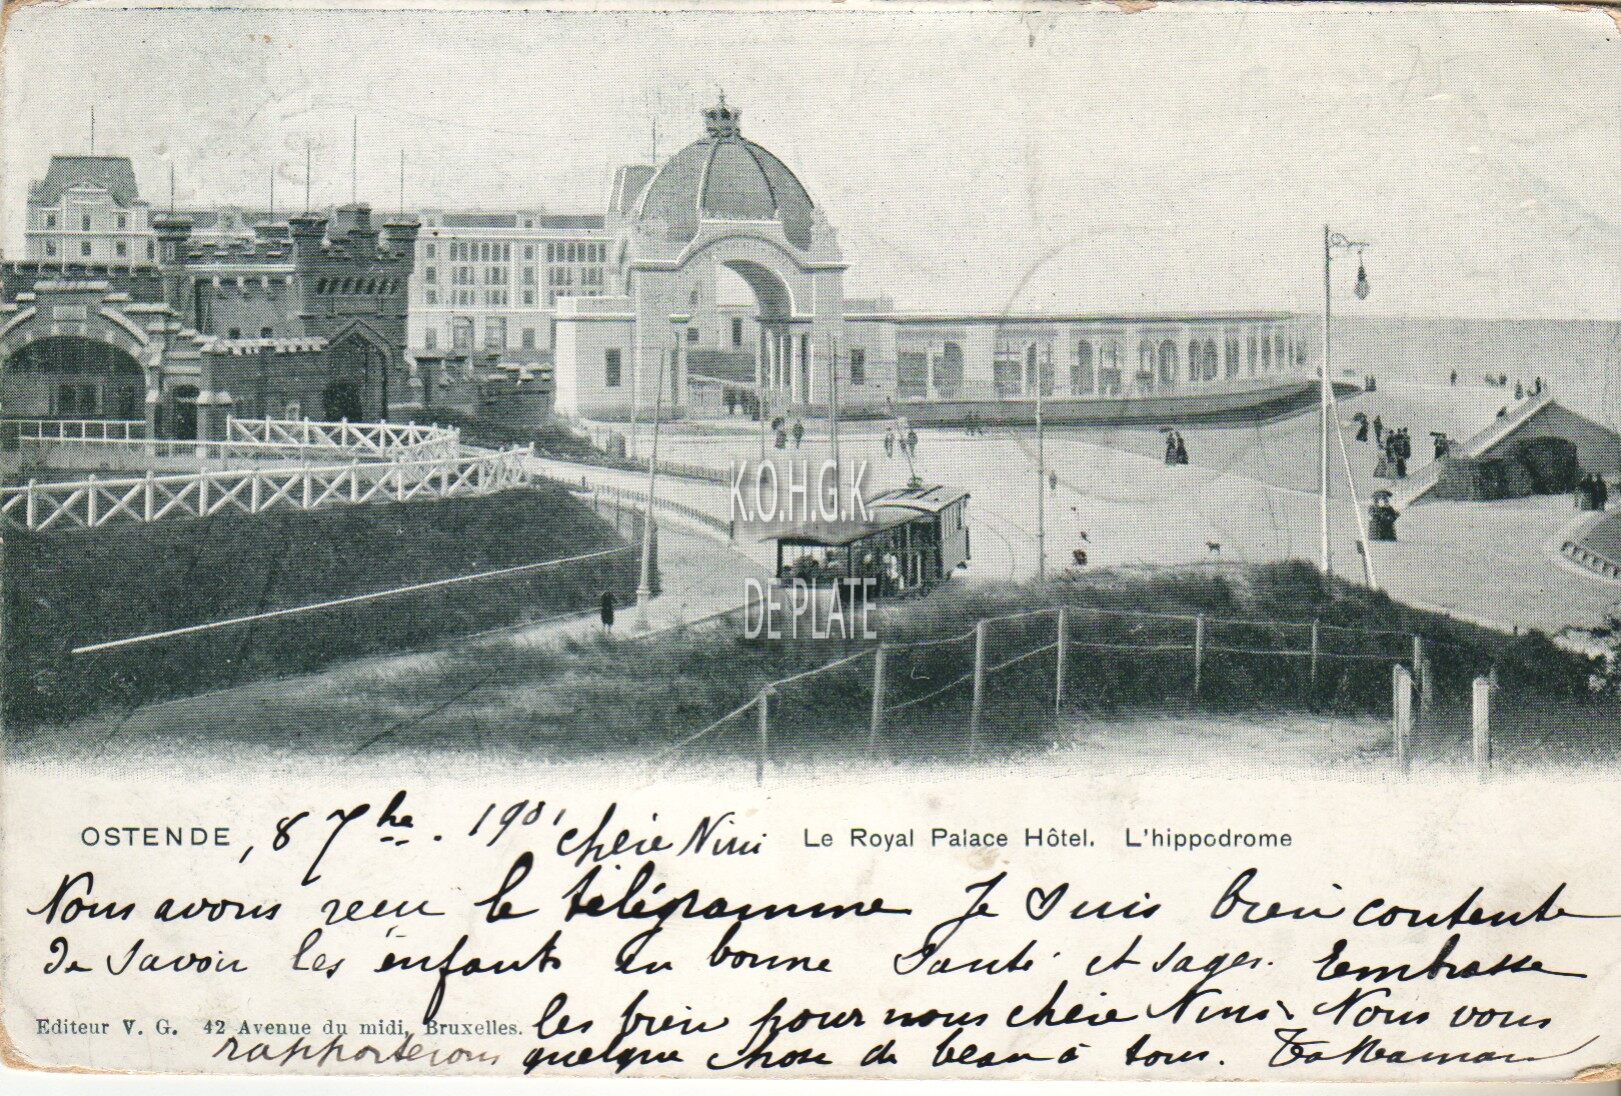 K.O.H.G.K.
DE PLATE
OSTENDE, 8 7bre. 1901 chère Nini Le Royal Palace Hôtel. L'hippodrome
Nous avons recu le télégramme Je suis bien contente
de savoir les enfants en bonne santé et sages. Embrasse
Editeur V. G. 42 Avenue du midi, Bruxelles. les bien pour nous chère Nini. Nous vous
rapporterons quelque chose de beau à tous. Ta Maman